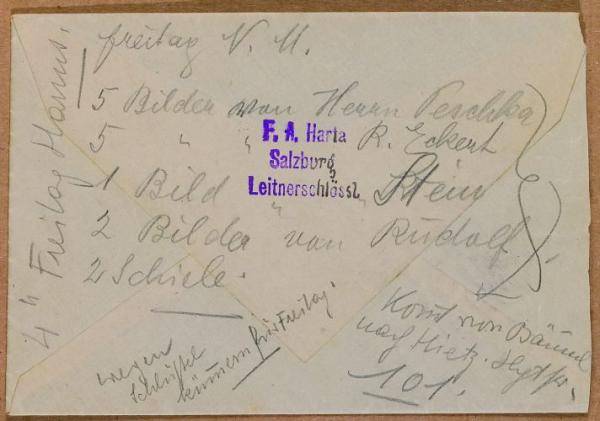 freitag N. M.
5 Bilder von Herrn Peschka
5 " " R. Eckert
1 Bild " " Stein
2 Bilder von Rudolf
2 Schiele.
F. A. Harta
Salzburg
Leitnerschlössl
4 " Freitag Hanus.
wegen
Schlüssel
kümmern für Freitag.
Komt von
nach Hietz.
101.